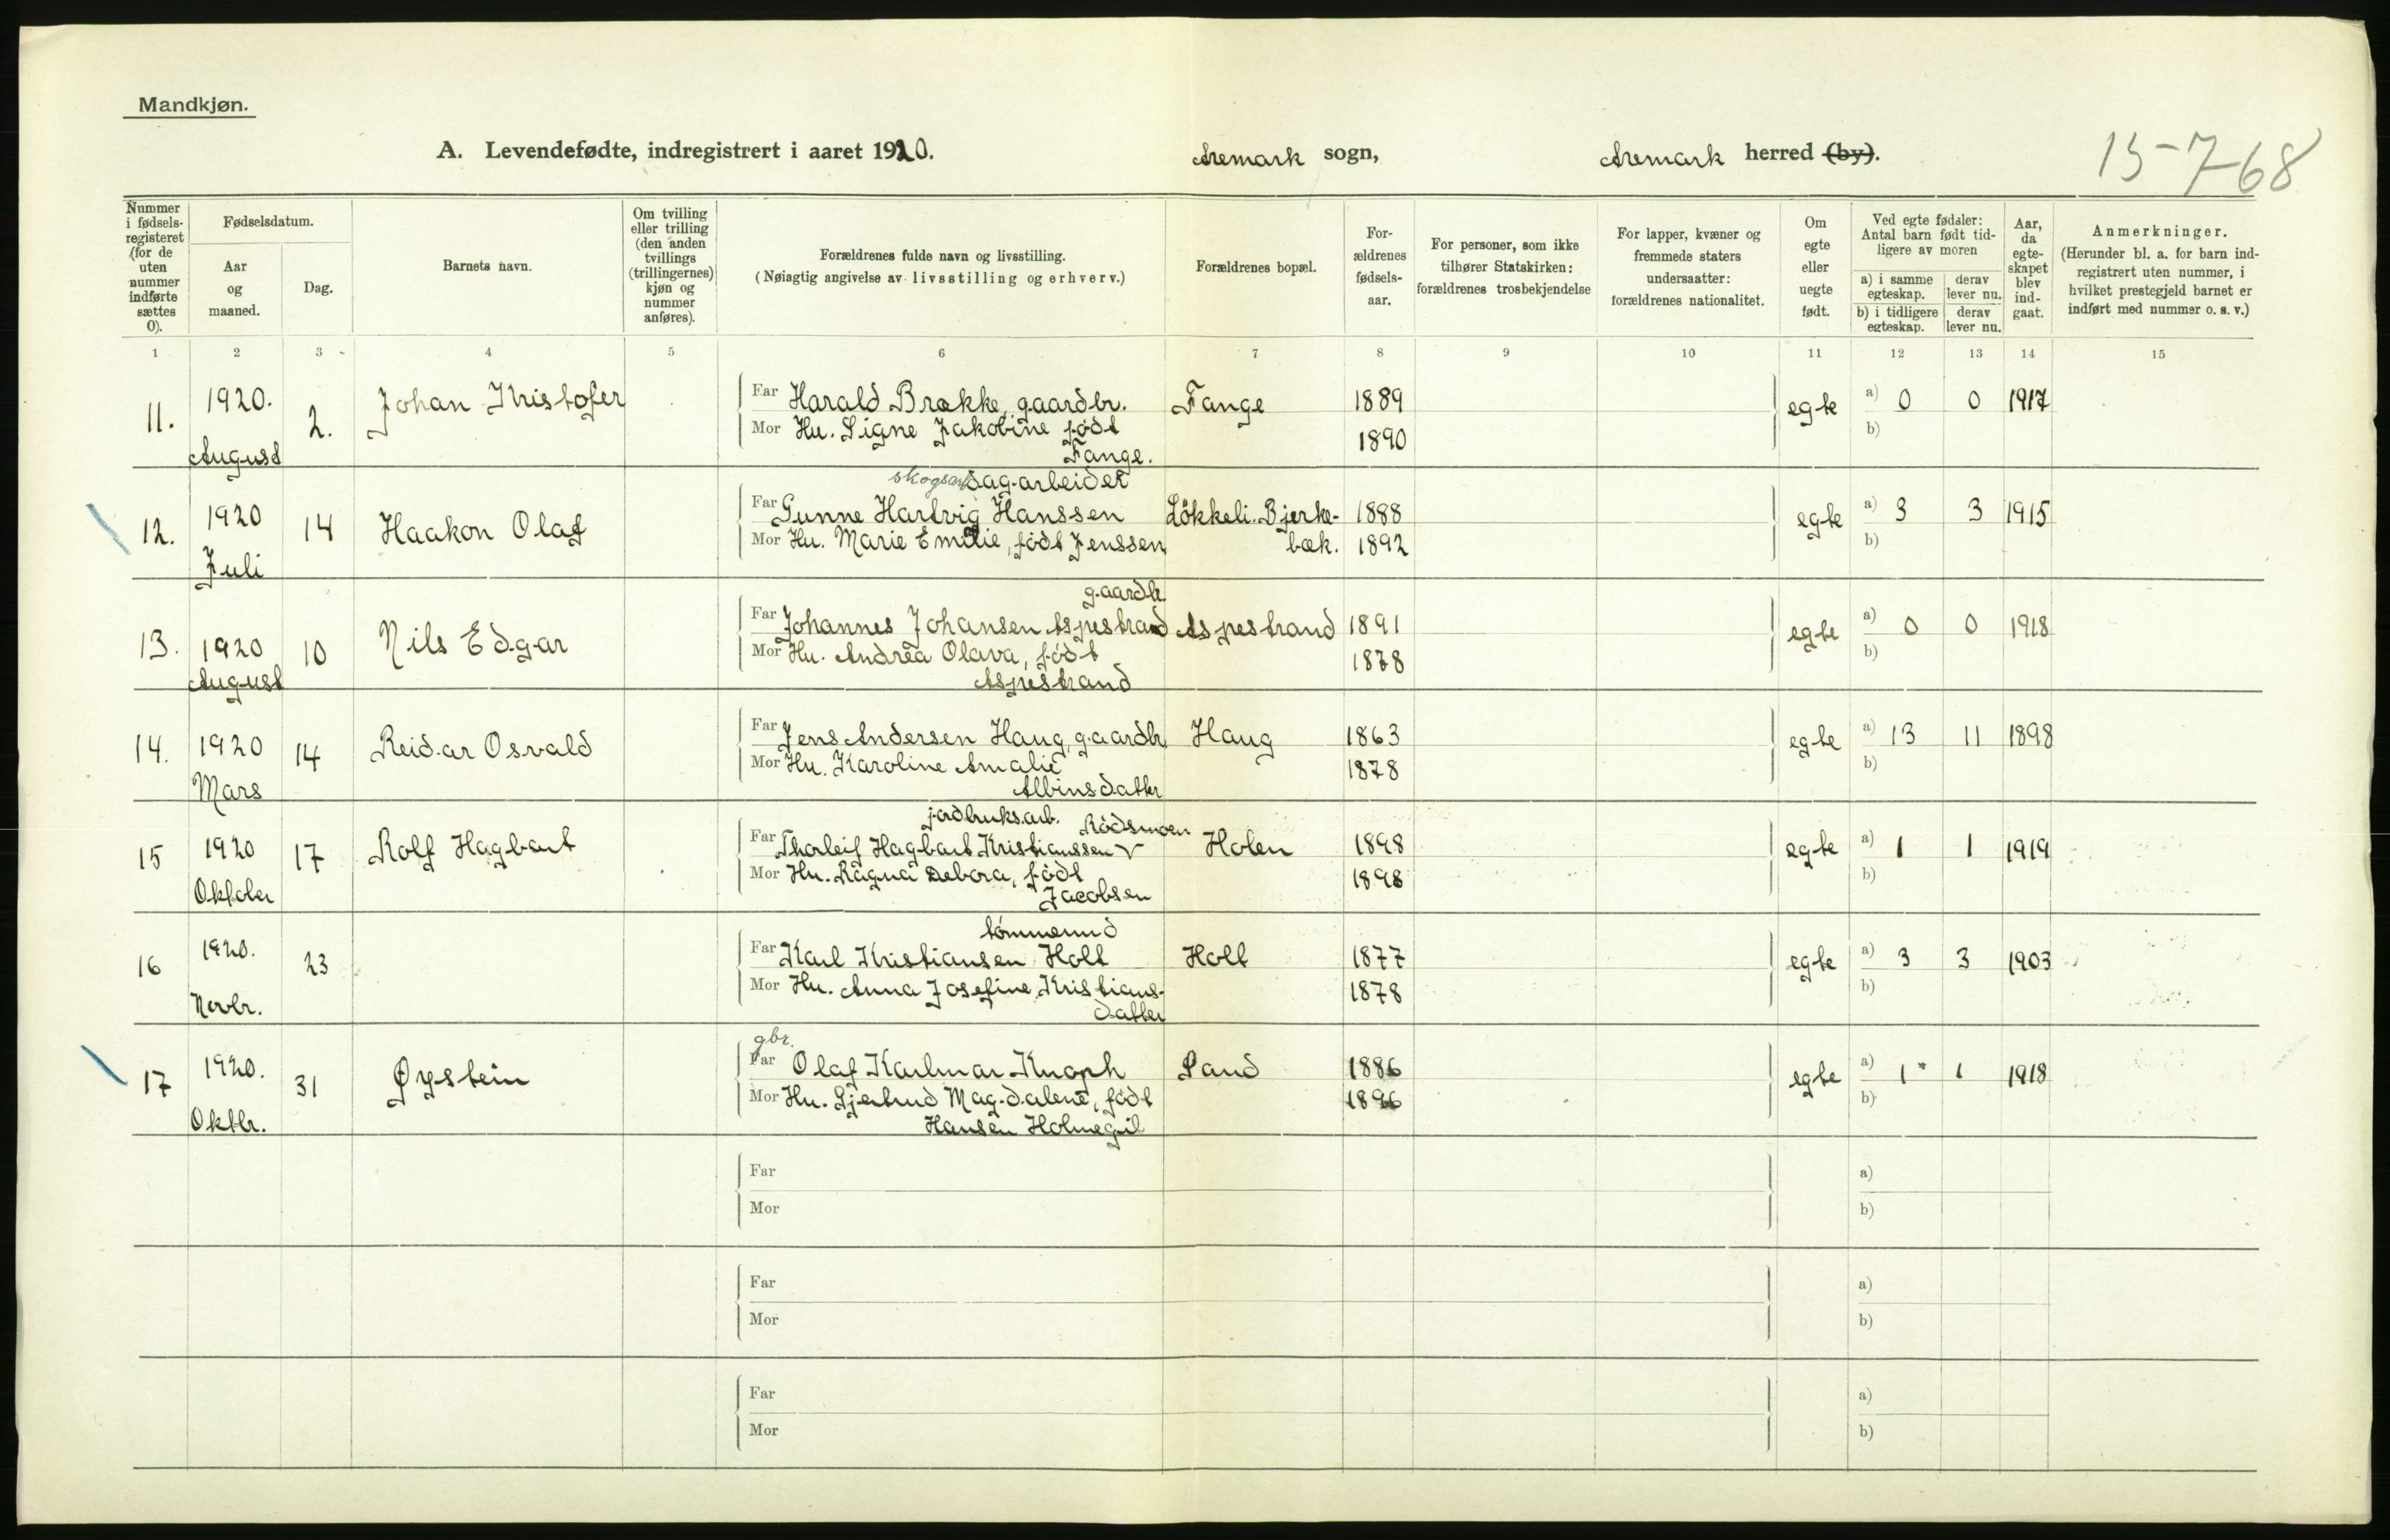 Mandkjøn.
A. Levendefødte, indregistrert i aaret 1920. Aremark sogn, Aremark herred (by).
15-7-68
Nummer i fødselsregisteret (for de uten nummer indførte sættes 0).
Fødselsdatum.
Aar og maaned.
Dag.
Barnets navn.
Om tvilling eller trilling (den anden tvillings (trillingernes) kjøn og nummer anføres).
Forældrenes fulde navn og livsstilling.
(Nøiagtig angivelse av livsstilling og erhverv.)
Forældrenes bopæl.
Forældrenes fødselsaar.
For personer, som ikke tilhører Statskirken: forældrenes trosbekjendelse
For lapper, kvæner og fremmede staters undersaatter: forældrenes nationalitet.
Om egte eller uegte født.
Ved egte fødsler: Antal barn født tidligere av moren
a) i samme egteskap.
derav lever nu.
b) i tidligere egteskap.
derav lever nu.
Aar, da egteskapet blev indgaat.
Anmerkninger.
(Herunder bl. a. for barn indregistrert uten nummer, i hvilket prestegjeld barnet er indført med nummer o. s. v.)
1 2 3 4 5 6 7 8 9 10 11 12 13 14 15
11. 1920. August 2. Johan Kristofer
Far Harald Brække, gaardbr. Fange 1889 egte a) 0 0 1917
Mor Hu. Signe Jakobine født 1890 b)
Fange.
skogsarb sagarbeider
12. 1920 Juli 14 Haakon Olaf
Far Gunne Hartvig Hanssen Løkkeli. Bjerke- 1888 egte a) 3 3 1915
Mor Hu. Marie Emilie, født Jenssen bæk. 1892 b)
gaardbr
13. 1920 August 10 Nils Edgar
Far Johannes Johansen Aspestrand Aspestrand 1891 egte a) 0 0 1918
Mor Hu. Andrea Olava, født 1878 b)
Aspestrand
14. 1920 Mars 14 Reidar Osvald
Far Jens Andersen Haug, gaardbr Haug 1863 egte a) 13 11 1898
Mor Hu. Karoline Amalie 1878 b)
Albinsdatter
jordbruksarb. Rødsmoen
15 1920 Oktober 17 Rolf Hagbart
Far Thorleif Hagbart Kristianssen v Holen 1898 egte a) 1 1 1919
Mor Hu. Ragna Debora, født 1898 b)
Jacobsen
tømmermd
16 1920. Novbr. 23
Far Karl Kristiansen Holt Holt 1877 egte a) 3 3 1903
Mor Hu. Anna Josefine Kristians- 1878 b)
datter
gbr.
17 1920. Oktbr. 31 Øystein
Far Olaf Karlmar Knoph Sand 1886 egte a) 1 1 1918
Mor Hu. Gjertrud Magdalene, født 1896 b)
Hansen Holmegil
Far a)
Mor b)
Far a)
Mor b)
Far a)
Mor b)